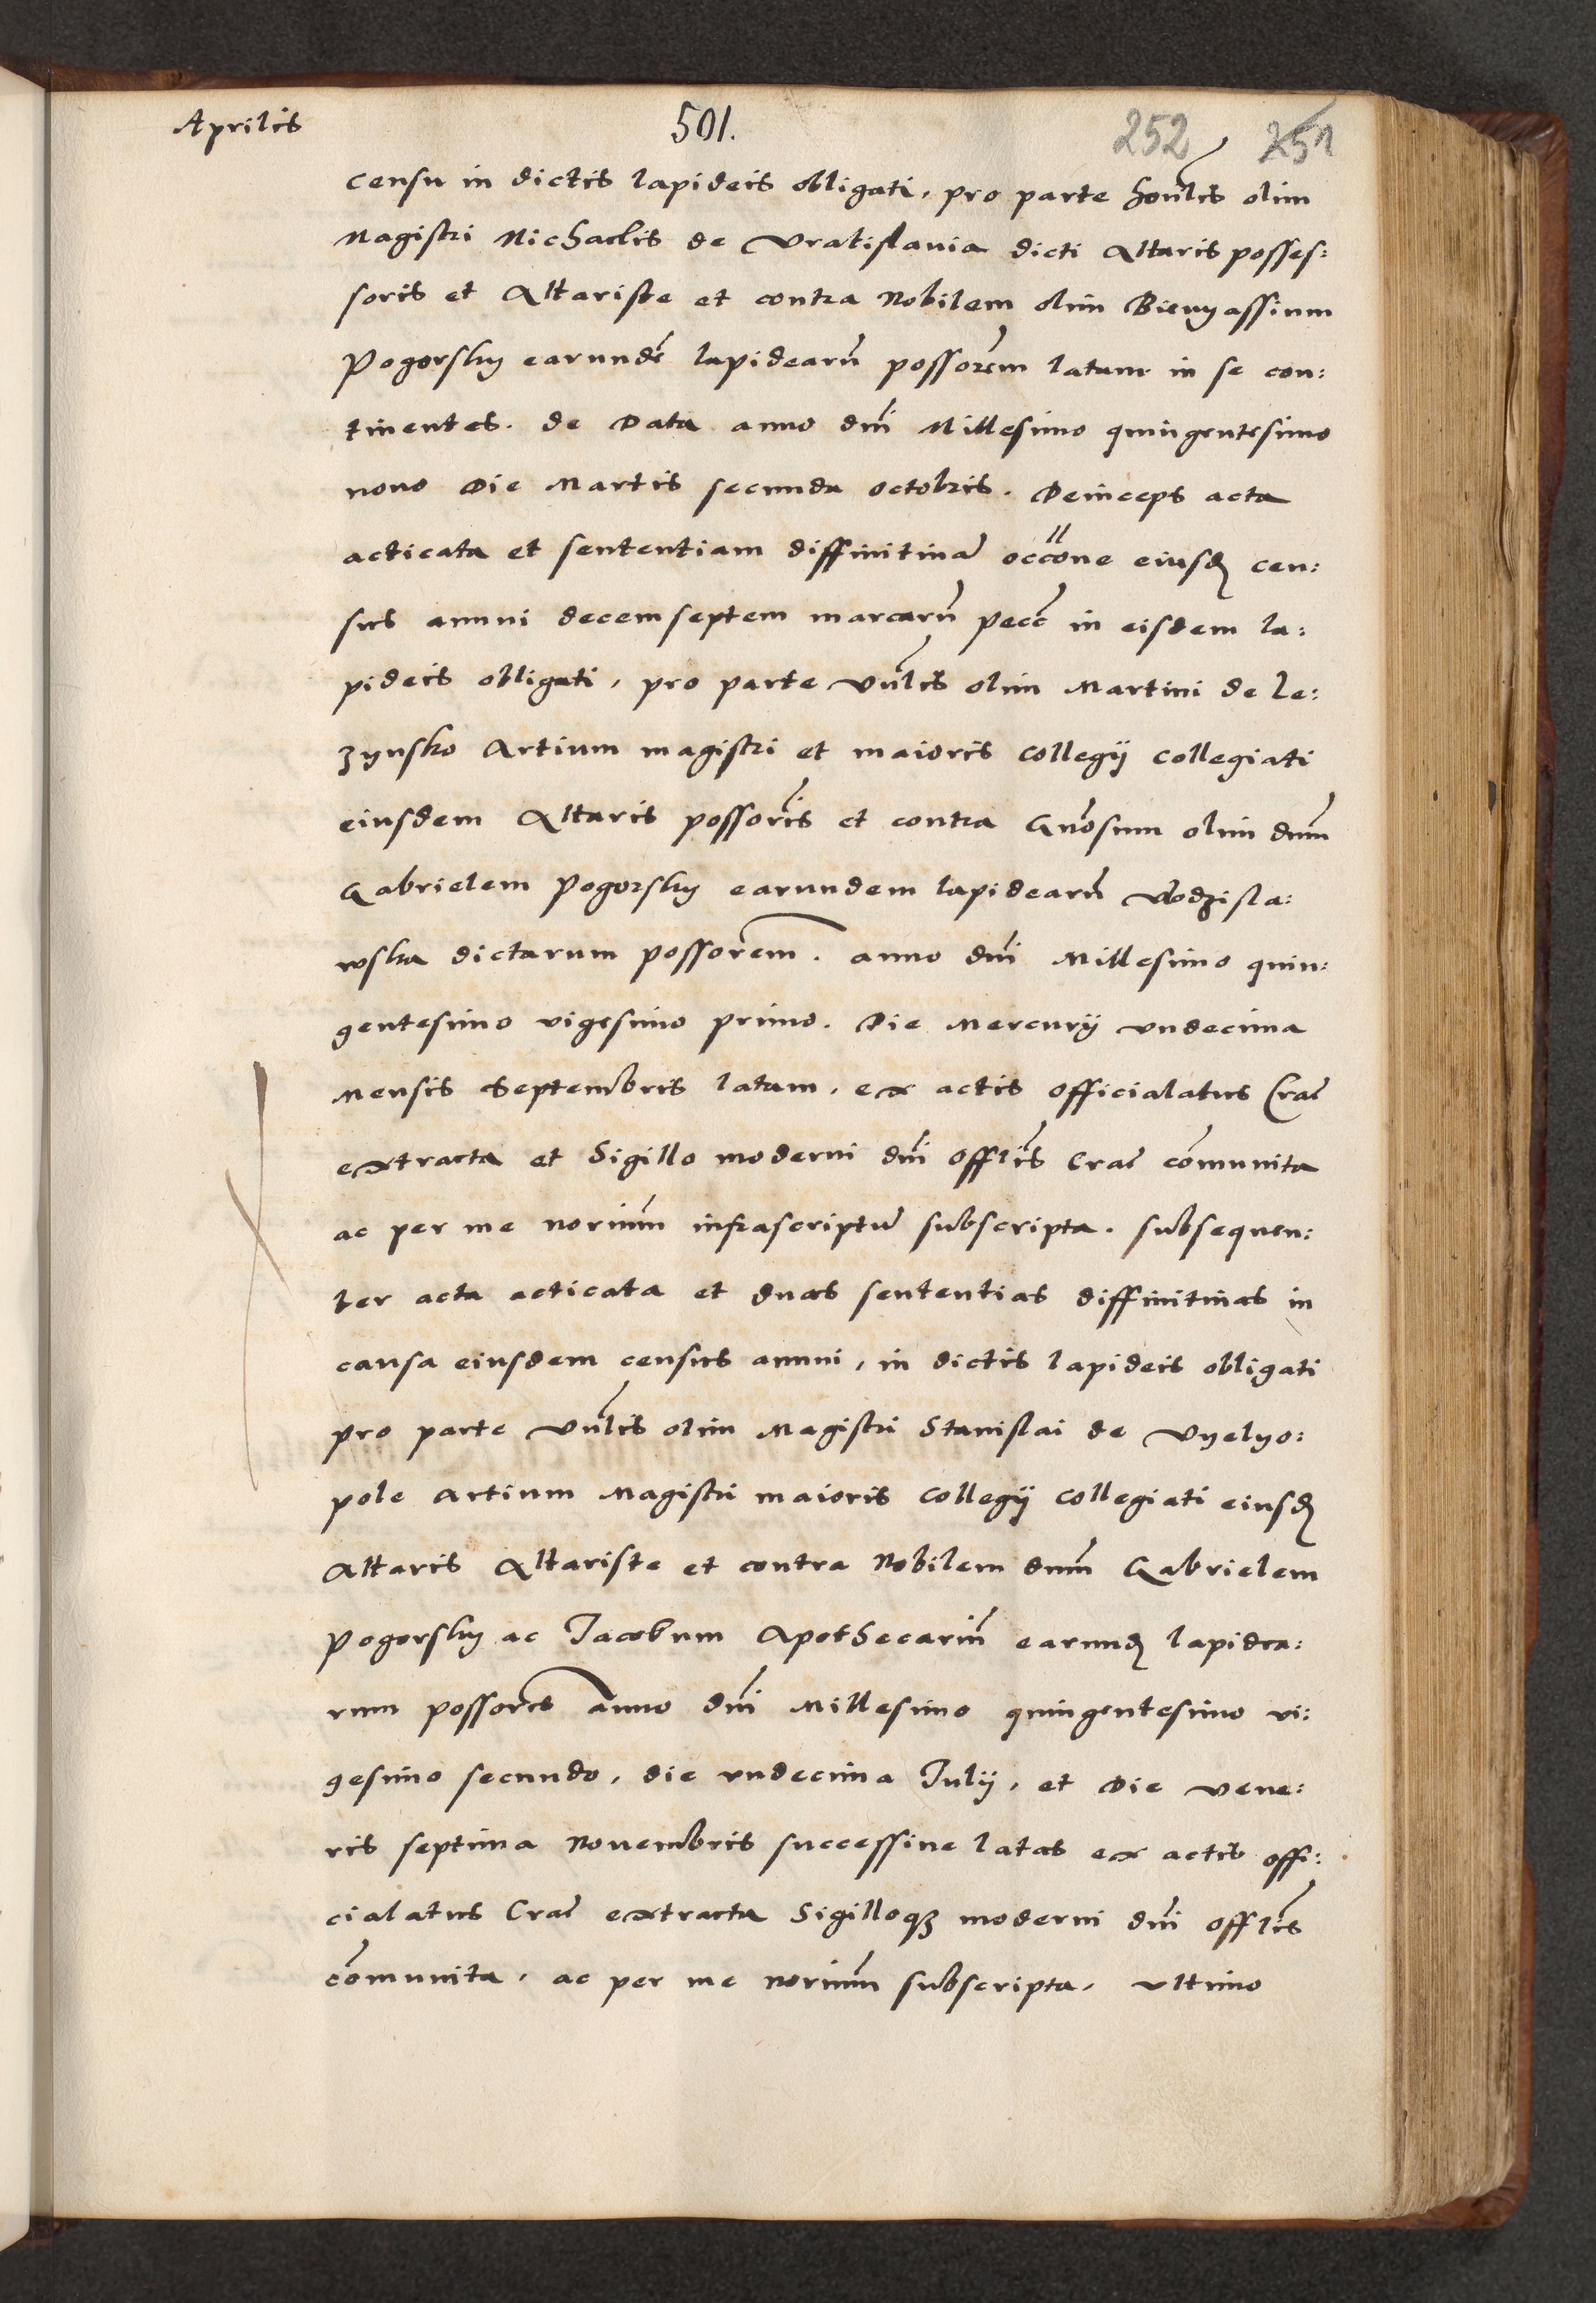 Aprilis 501. 252 251
censu in dictis lapideis obligati, pro parte hon̄lis olim
Magistri Michaelis de Vratislauia dicti Altaris posses:
soris et Altariste et contra Nobilem olim Bienyassium
Pogorsky earunde͂ lapidearu͂ possore͂m latam in se con:
tinentes. de Data anno dni͂ Millesimo quingentesimo
nono Die Martis secunda octobris. Deinceps acta
acticata et sententiam diffinitiua͂ occ͂one eiusd͂ cen:
sus annui decemseptem marcaru͂ pecc͂ in eisdem la:
pideis obligati, pro parte Vn͂lis olim Martini de Le:
zynsko Artium magistri et maioris Collegij Collegiati
eiusdem Altaris possori͂s et contra Gn͂osum olim dnm͂
Gabrielem Pogorsky earundem lapidearu͂ Wodzisla:
wska dictarum possore͂m. anno dni͂ Millesimo quin:
gentesimo vigesimo primo. Die Mercurij vndecima
Mensis Septembris latam, ex actis officialatus Cra͂
extracta et Sigillo moderni dni͂ offlis͂ Cra͂ co͂munita
ac per me norium͂ infrascriptu͂ subscripta. subsequen:
ter acta acticata et duas sententias diffinitiuas in
causa eiusdem census annui, in dictis lapideis obligati
pro parte Vn͂lis olim Magistri Stanislai de Vyelyo:
pole Artium Magistri maioris Collegij Collegiati eiusd͂
Altaris Altariste et contra Nobilem dnm͂ Gabrielem
Pogorsky ac Jacobum Apothecariu͂ earund͂ lapidea:
rum possores͂ anno dni͂ Millesimo quingentesimo vi:
gesimo secundo, die vndecima Julij, et Die vene:
ris septima Nouembris successiue latas ex actis offi:
cialatus Cra͂ extracta Sigilloq3 moderni dni͂ offlis͂
co͂munita, ac per me norium͂ subscripta, vltimo